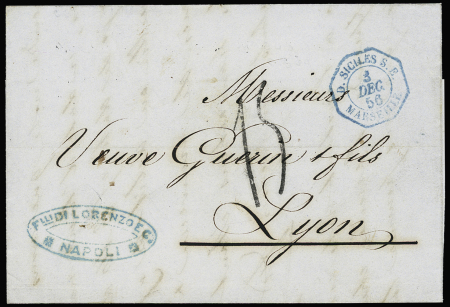 D. SICILES S. R.
3
DEC.
56
MARSEILLE
Messieurs
15
Veuve Guerin & fils
Lyon
FLLI DI LORENZO E C.
NAPOLI